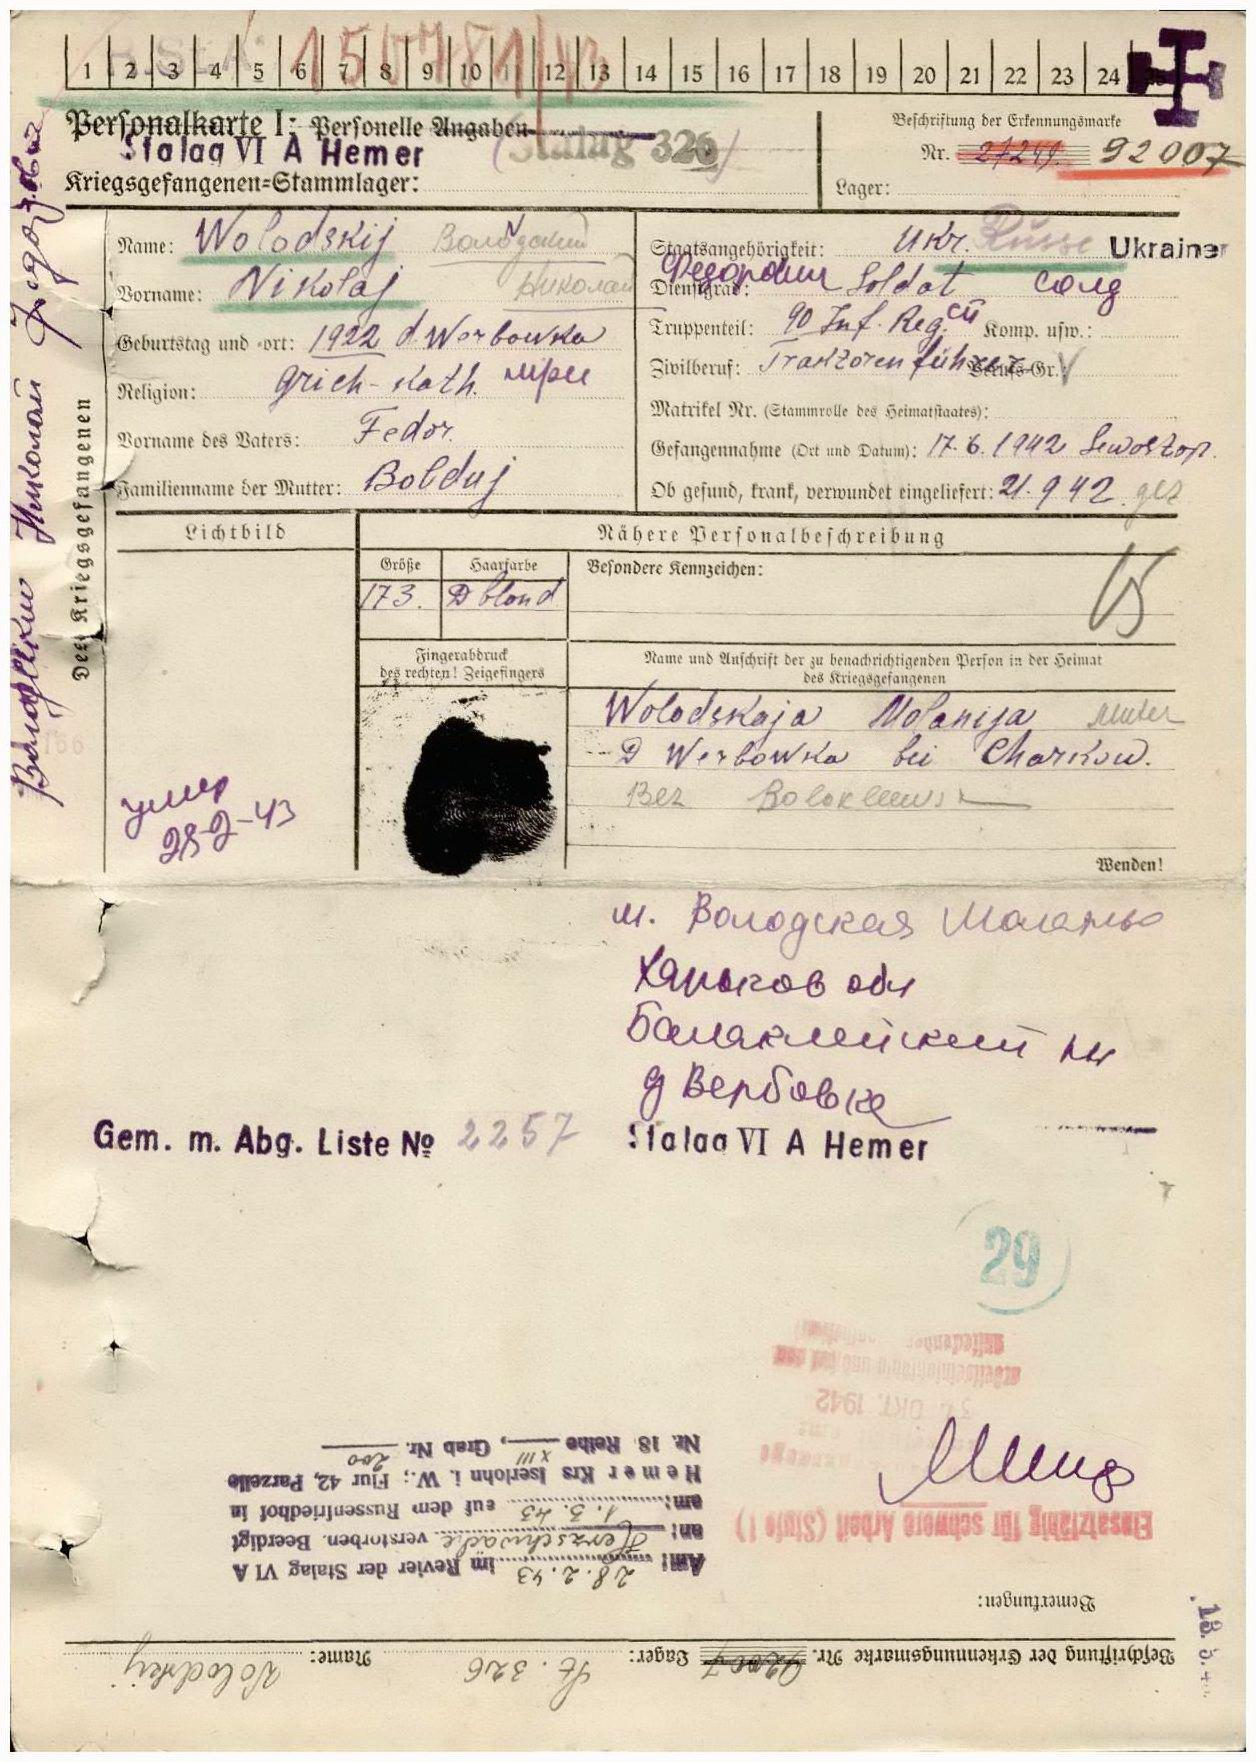 1 2 3 4 5 6 7 8 9 10 11 12 13 14 15 16 17 18 19 20 21 22 23 24 25
Personalkarte I: Personelle Angaben
Stalag VI A Hemer (Stalag 326)
Kriegsgefangenen=Stammlager:
Beschriftung der Erkennungsmarke
Nr. 27249. 92007
Lager:
Des Kriegsgefangenen
Володский Николай Федорович
Name: Wolodskij Володский
Vorname: Nikolaj Николай
Geburtstag und -ort: 1922 d. Werbowka
Religion: Grich-Kath.
Vorname des Vaters: Fedor.
Familienname der Mutter: Bolduj
Staatsangehörigkeit: Ukr. Russe Ukrainer
Федорович
Dienstgrad: Soldat солд
Truppenteil: 90 Inf. Reg. Komp. usw.:
Zivilberuf: Traktorenführer Berufs-Gr.
Matrikel Nr. (Stammrolle des Heimatstaates):
Gefangennahme (Ort und Datum): 17.6.1942 Sewostop.
Ob gesund, krank, verwundet eingeliefert: 21.9.42. ges
Lichtbild
Nähere Personalbeschreibung
Größe Haarfarbe Besondere Kennzeichen:
173. D blond
Fingerabdruck
des rechten! Zeigefingers
Name und Anschrift der zu benachrichtigenden Person in der Heimat
des Kriegsgefangenen
Wolodskaja Molanija Muter
D Werbowka bei Charkow.
Bez
умер
28-2-43
Wenden!
м. Володская
Харьков обл
Балаклейский
д Вербовка
Gem. m. Abg. Liste № 2257
Stalag VI A Hemer
29
31. OKT. 1942
Einsatzfähig für schwere Arbeit (Stufe I)
Bemerkungen:
Am: 28.2.43 im Revier der Stalag VI A
an: Herzschwäche verstorben. Beerdigt
am: 1.3.43 auf dem Russenfriedhof in
Hemer Krs Iserlohn i. W.; Flur 42, Parzelle
Nr. 18 Reihe XIII, Grab Nr. 200
Beschriftung der Erkennungsmarke Nr. 92007 Lager: St. 326 Name: Wolodskij